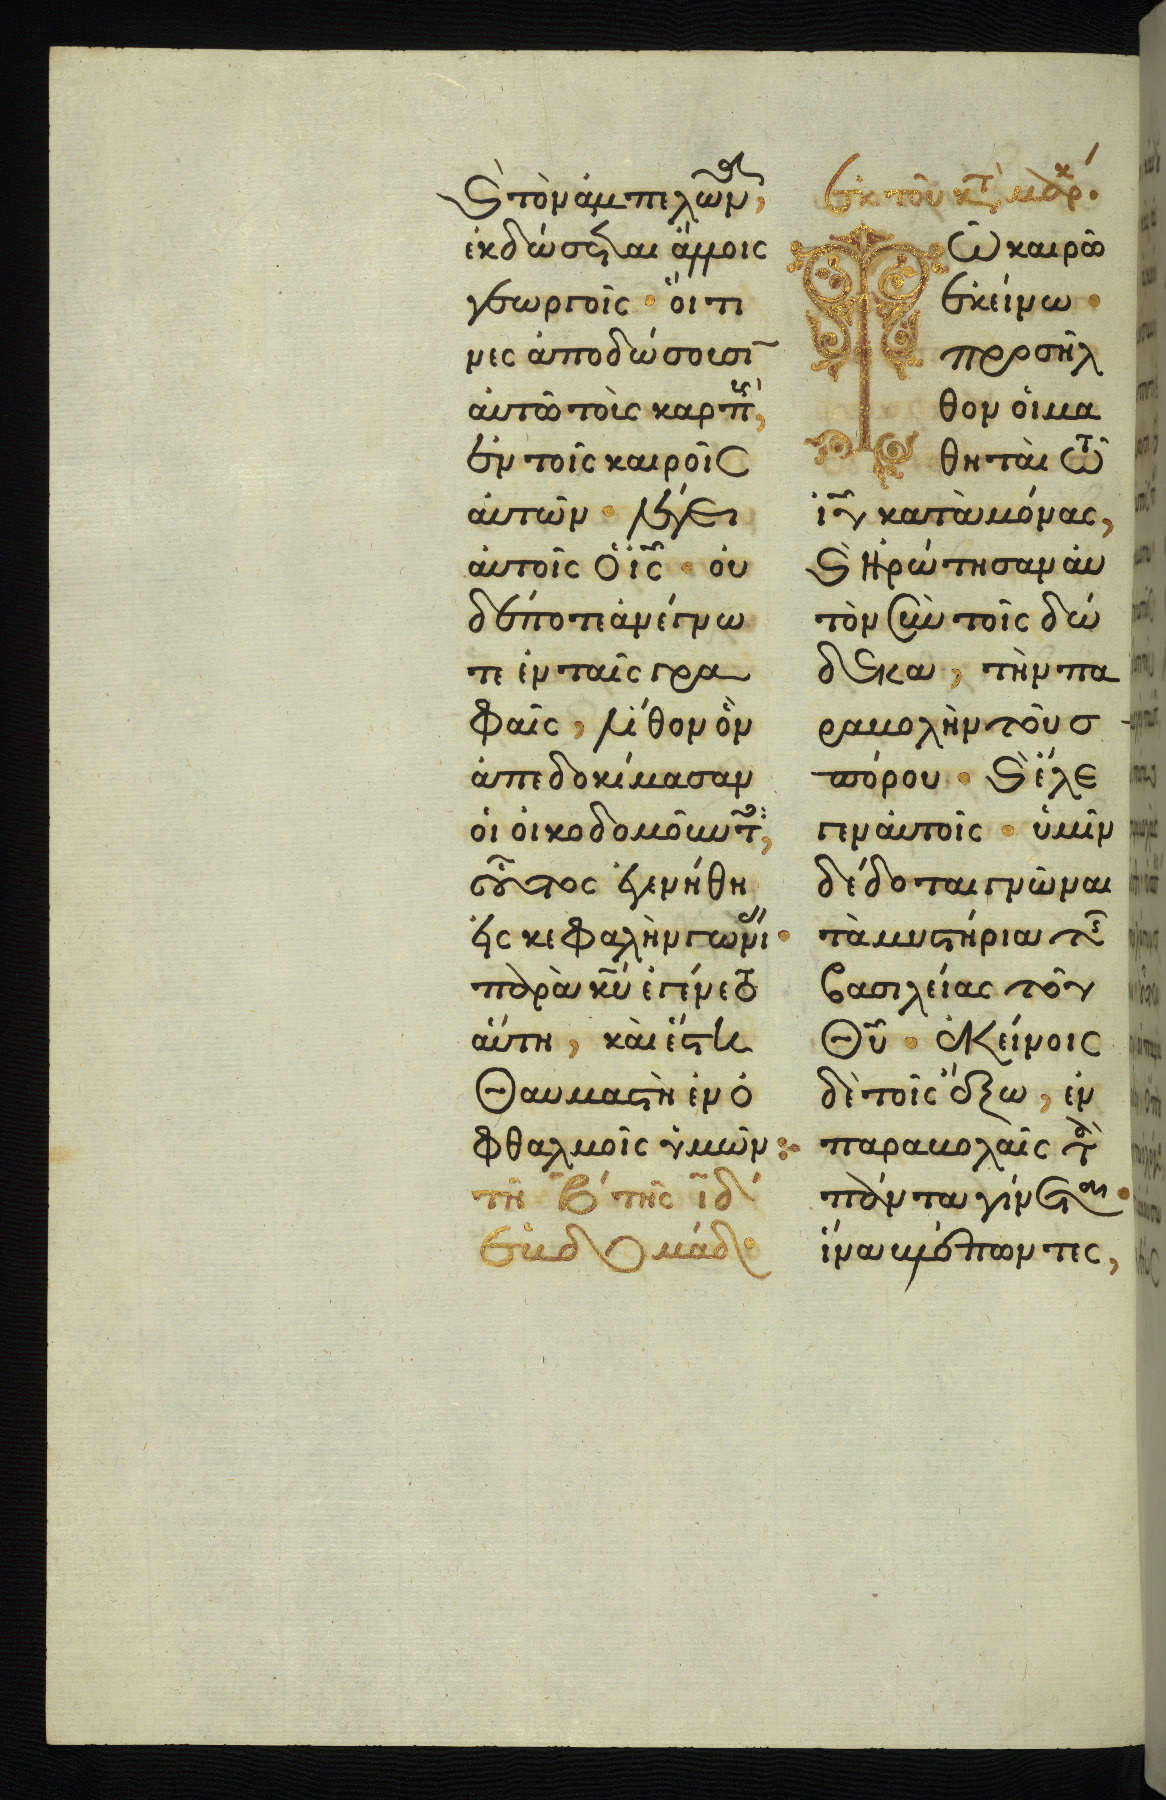 Ϗ τὸν ἀμπελῶν,
ἐκδώσεται ἄλλοις
γεωργοῖς · οἵτι
νες ἀποδώσουσῑ
αὐτῶ τοὺς καρπ,
ἐν τοῖς καιροῖς
αὐτῶν · λέγει
αὐτοῖς ὁ ἰς̅ · οὐ
δέποτε ἀνέγνω
τε ἐν ταῖς γρα
φαῖς, λίθον ὃν
ἀπεδοκίμασαν
οἱ οἰκοδομοῦντ,
οὗτος ἐγενήθη
εἰς κεφαλὴν γωνί ·
παρὰ κῡ ἐγένετο
αὕτη, καὶ ἔστι
θαυμαστὴ ἐν ὀ
φθαλμοῖς ὑμῶν :·
τῆ β´ τῆς ιδ´
ἑβδομάδ
ἐκ τοῦ κτ μαρκ.
Τῶ καιρῶ
ἐκείνω ·
προσῆλ
θον οἱ μα
θηταὶ τῶ
ἰῡ κατὰ μόνας,
Ϗ ἠρώτησαν αὐ
τὸν σὺν τοῖς δώ
δεκα, τὴν πα
ραβολὴν τοῦ σ
πόρου · Ϗ ἔλε
γεν αὐτοῖς · ὑμῖν
δέδοται γνῶναι
τὰ μυστήρια τ
βασιλείας τοῦ
θῡ · ἐκείνοις
δὲ τοῖς ἔξω, ἐν
παραβολαῖς τ
πάντα γίνεται ·
ἵνα βλέποντες,